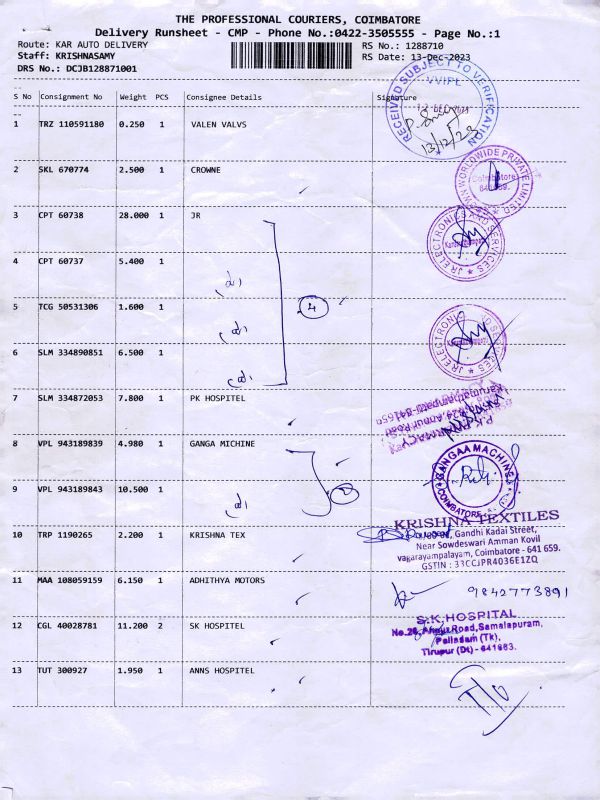 THE PROFESSIONAL COURIERS, COIMBATORE
Delivery Runsheet - CMP - Phone No.:0422-3505555 - Page No.:1
Route: KAR AUTO DELIVERY
RS No.: 1288710
Staff: KRISHNASAMY
RS Date: 13-Dec-2023
DRS No.: DCJB128871001
S No Consignment No Weight PCS Consignee Details Signature
RECEIVED SUBJECT TO VERIFICATION
VVIPL
13/12/23
1 TRZ 110591180 0.250 1 VALEN VALVS
2 SKL 670774 2.500 1 CROWNE
WORLDWIDE PRIVATE LIMITED
Coimbatore
3 CPT 60738 28.000 1 JR
JR ELECTRONICS AND SERVICES
4 CPT 60737 5.400 1
5 TCG 50531306 1.600 1
4
JR ELECTRONICS
6 SLM 334890851 6.500 1
7 SLM 334872053 7.800 1 PK HOSPITEL
8 VPL 943189839 4.980 1 GANGA MICHINE
GANGAA MACHINE
COIMBATORE
9 VPL 943189843 10.500 1
2
10 TRP 1190265 2.200 1 KRISHNA TEX
KRISHNA TEXTILES
Gandhi Kadai Street,
Near Sowdeswari Amman Kovil
vagarayampalayam, Coimbatore - 641 659.
GSTIN : 33CCJPR4036E1ZQ
11 MAA 108059159 6.150 1 ADHITHYA MOTORS
9842773891
12 CGL 40028781 11.200 2 SK HOSPITEL
S.K. HOSPITAL
No.26, Annur Road, Samalapuram,
Palladam (Tk),
Tirupur (Dt) - 641663.
13 TUT 300927 1.950 1 ANNS HOSPITEL